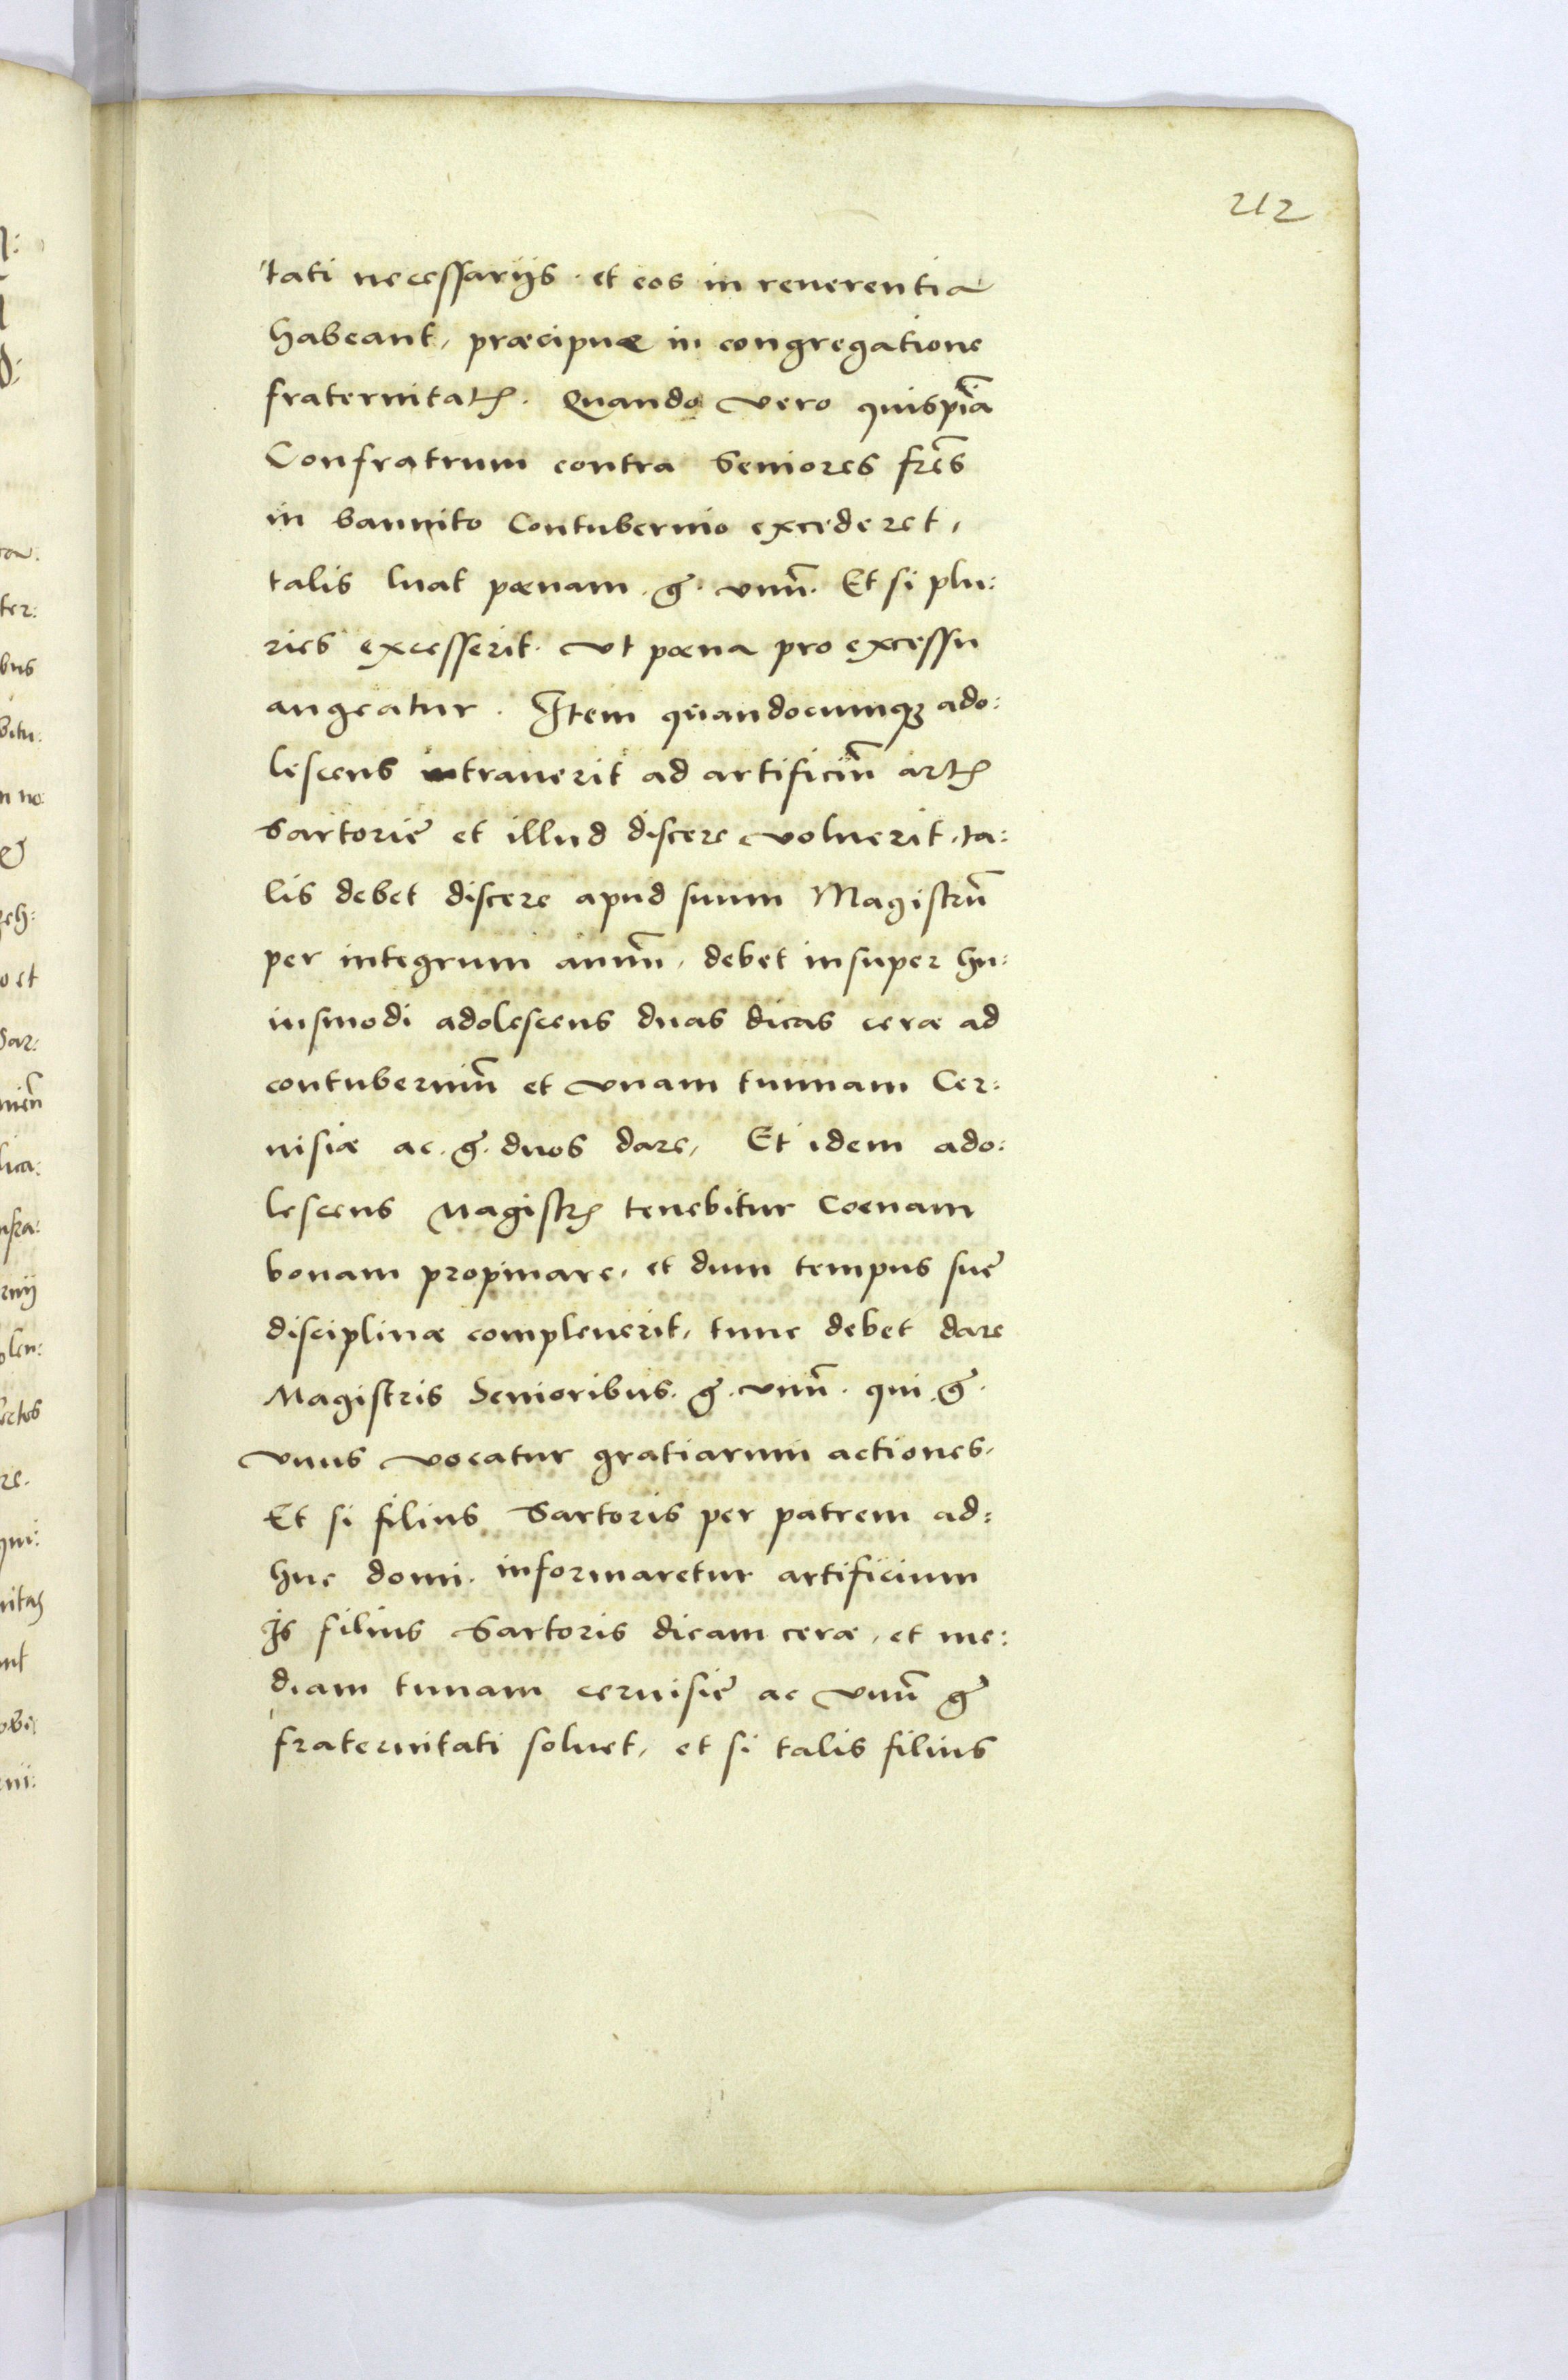 212
tati necessarijs. et eos in reuerentia
habeant, præcipuæ in congregatione
fraternitatꝭ. Quando vero quispiā
Confratrum contra Seniores fr̄es
in bannito Contubernio excederet,
talis luat pœnam. g̃. vnū. Et si plu:
ries excesserit. vt pœna pro excessu
augeatur. Item quandocumqꝫ ado:
lescens intrauerit ad artificiū artꝭ
Sartorię et illud discere voluerit, ta:
lis debet discere apud suum Magistrū
per integrum annū, debet insuper hu:
iusmodi adolescens duas dicas ceræ ad
contuberniū et vnam tunnam Cer:
uisiæ ac. g̃. duos dare, Et idem ado:
lescens Magistrꝭ tenebitur Coenam
bonam propinare, et dum tempus suę
disciplinæ compleuerit, tunc debet dare
Magistris Senioribus. g̃. vnū. qui. g̃.
vnus vocatur gratiarum actiones.
Et si filius Sartoris per patrem ad:
huc domi. informaretur artificium
Is filius Sartoris dicam ceræ, et me:
diam tunam ceruisię ac vnū g̃
fraternitati soluet, et si talis filius